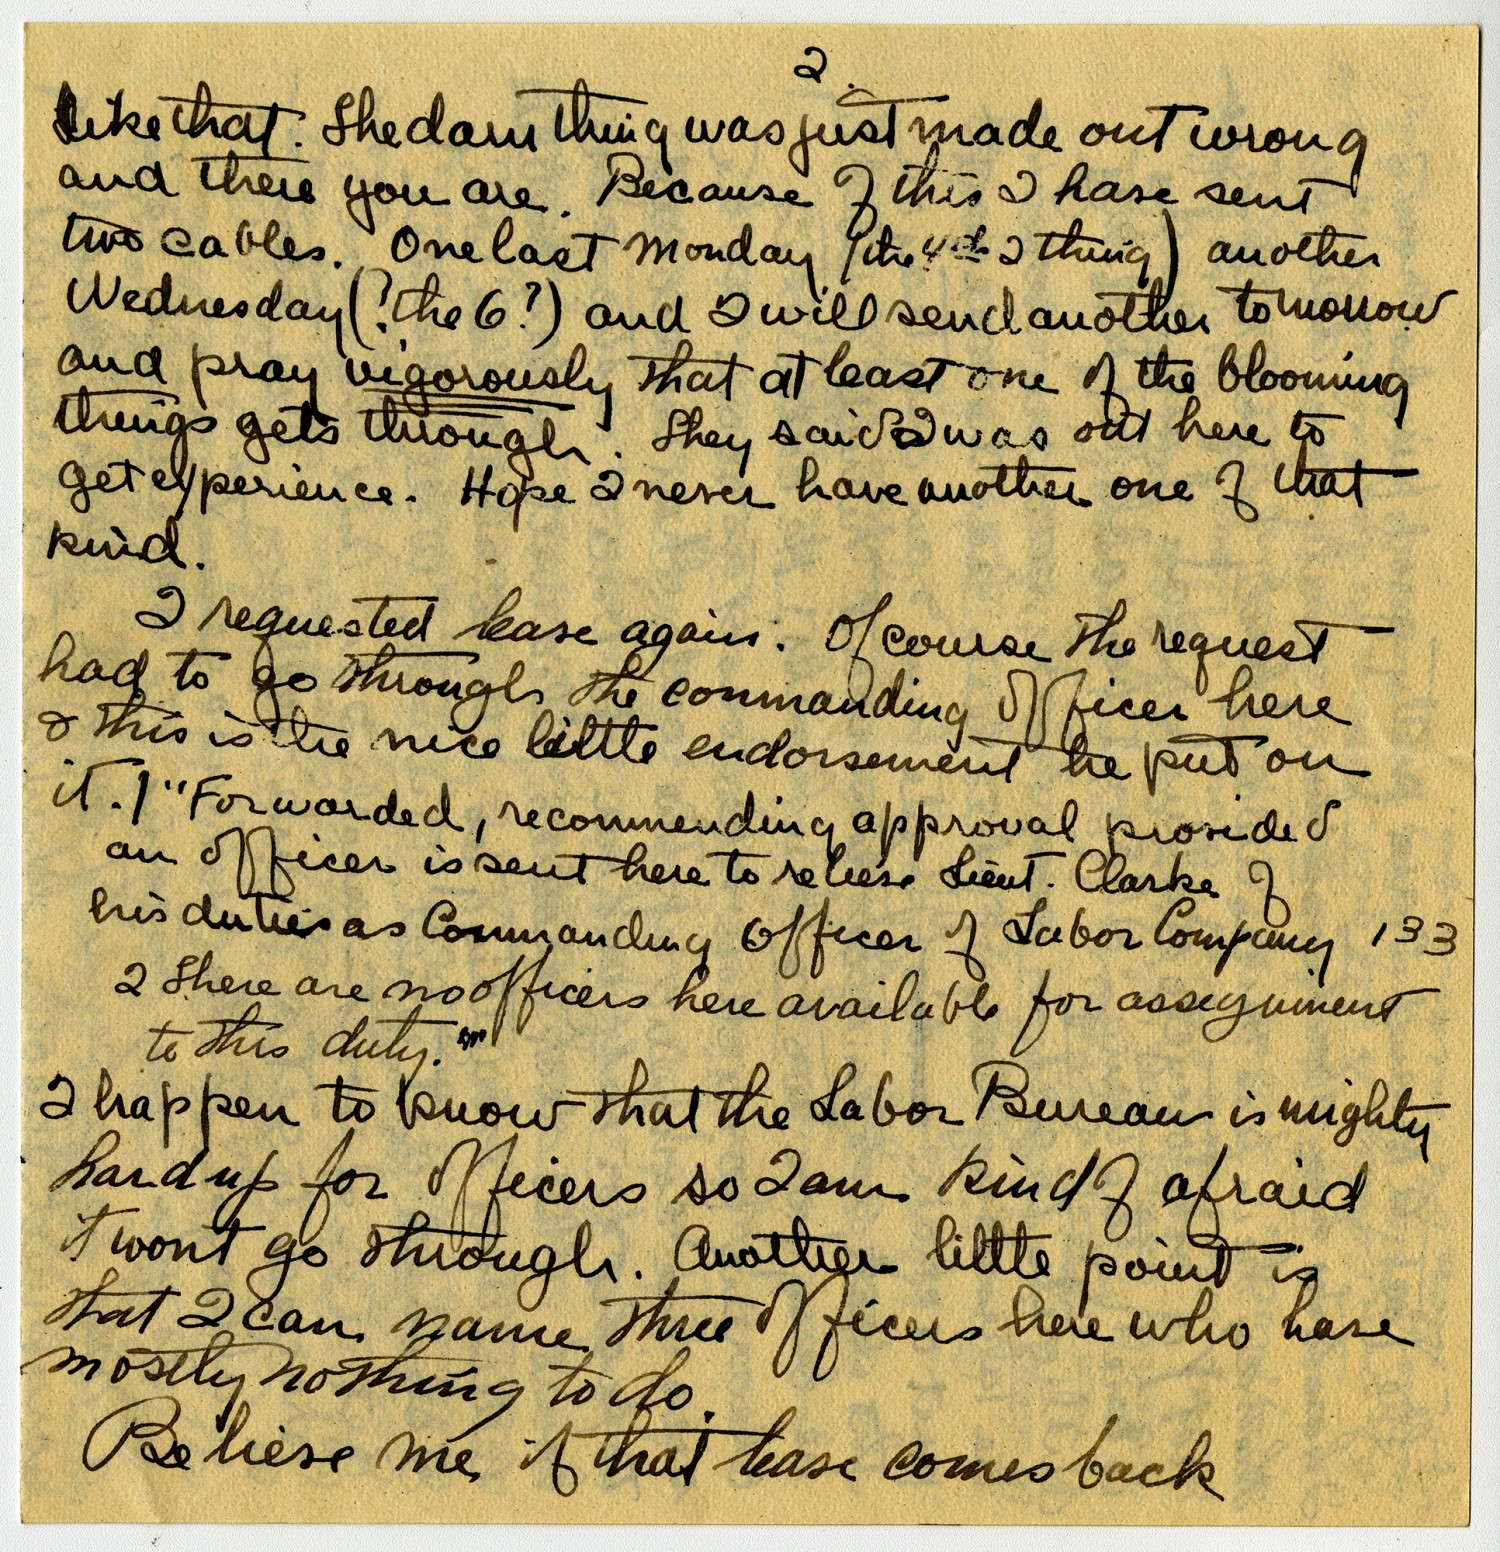 2.
like that. The darn thing was just made out wrong
and there you are. Because of this I have sent
two cables. One last Monday (the 4th I think) another
Wednesday (? the 6?) and I will send another tomorrow
and pray vigorously that at least one of the blooming
things gets through. They said I was out here to
get experience. Hope I never have another one of that
kind.
I requested leave again. Of course the request
had to go through the commanding officer here
& this is the nice little endorsement he put on
it. 1 "Forwarded, recommending approval provided
an officer is sent here to relieve Lieut. Clarke of
his duties as Commanding Officer of Labor Company 133
2 There are no officers here available for assignment
to this duty."
I happen to know that the Labor Bureau is mighty
hard up for officers so I am kind of afraid
it wont go through. Another little point is
that I can name three officers here who have
mostly nothing to do.
Believe me if that leave comes back